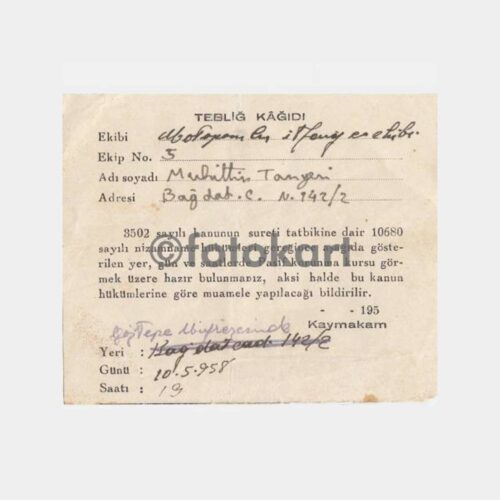 TEBLİĞ KÂĞIDI
Ekibi Motopomlu itfaiye ekibi
Ekip No. 5
Adı soyadı Muhittin
Adresi Bağdat. C. N. 142/2
3502 sayılı kanunun sureti tatbikine dair 10680
sayılı nizamname hükümleri gereğince aşağıda göste-
rilen yer, gün ve saatlerde pasif korunma kursu gör-
mek üzere hazır bulunmanız, aksi halde bu kanun
hükümlerine göre muamele yapılacağı bildirilir.
©fotokart
- - 195
Kaymakam
Göztepe
Yeri : Bağdat cad. 142/2
Günü : 10.5.958
Saatı : 19